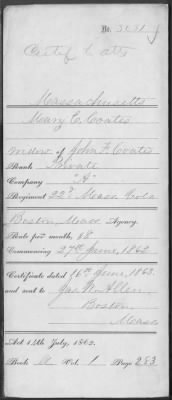 No. 3031
Certif & atts
Massachusetts
Mary C. Coates
widow of John F. Coates
Rank Private
Company "A"
Regiment 22d Mass Vols
Boston, Mass Agency.
Rate per month, $8
Commencing 27th June, 1862
Certificate dated 16th June, 1863.
and sent to Jas. W. Allen
Boston
Mass
Act 14th July, 1862.
Book A Vol. 1 Page 283